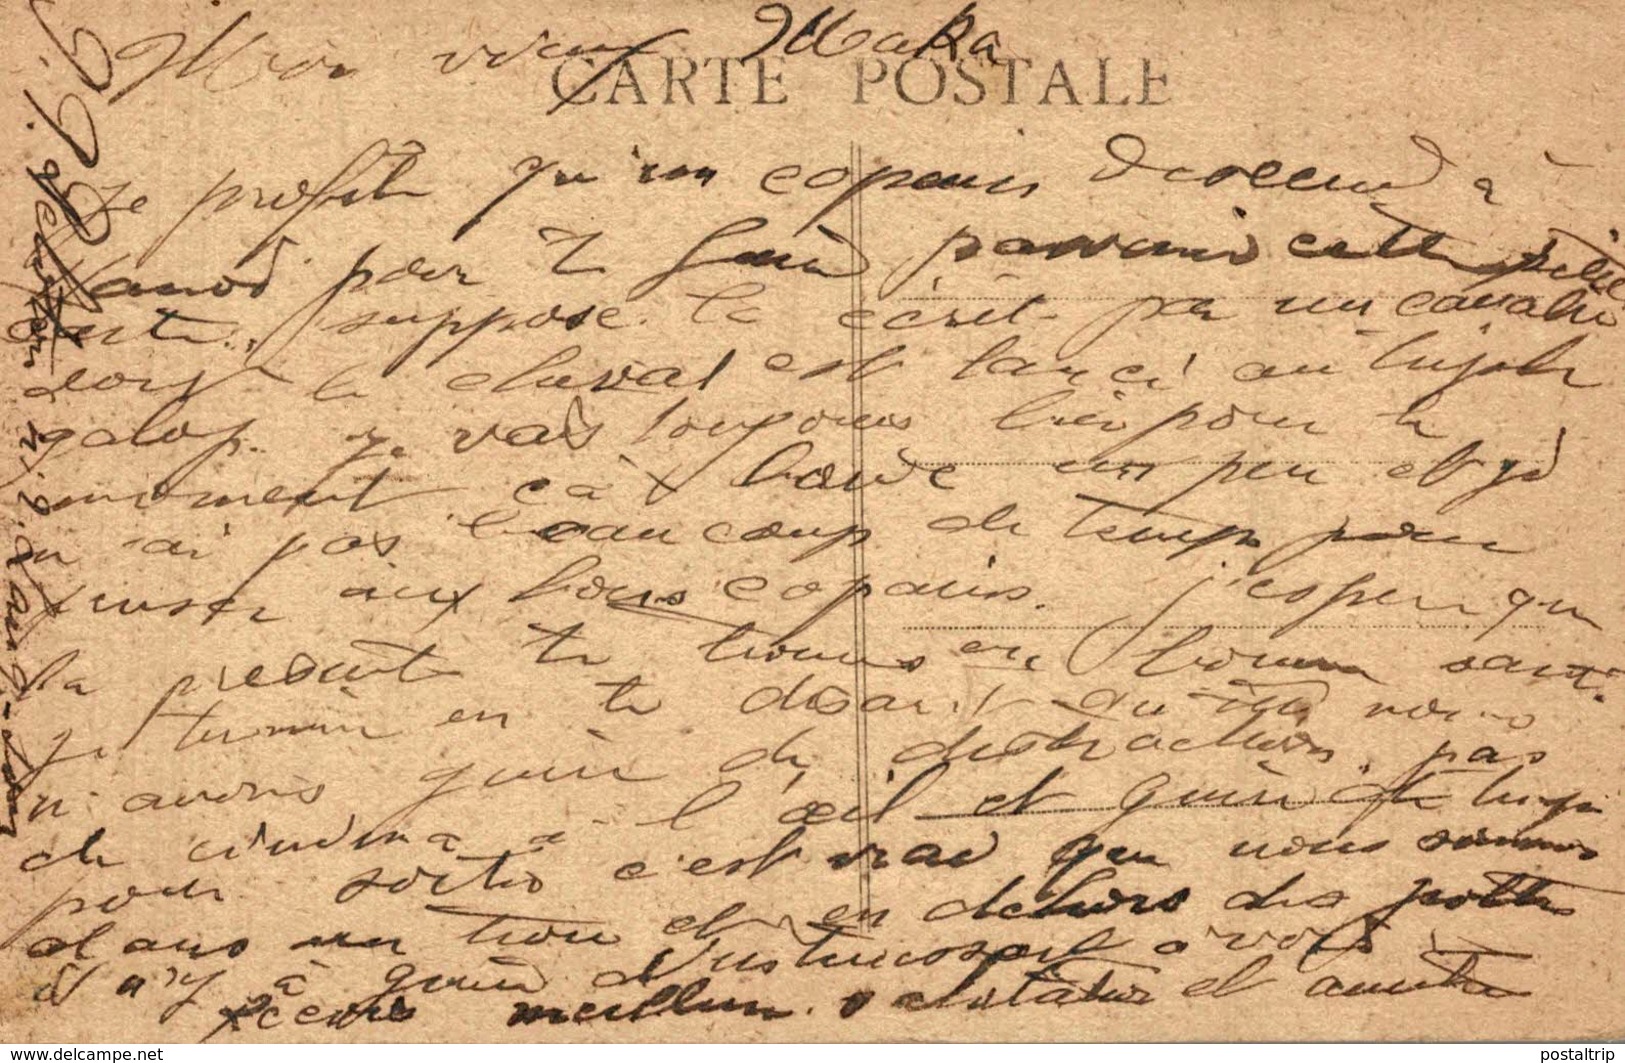 Mon vieux Maka
CARTE POSTALE
je profite qu'un copain descend à
Hanoi pour te faire parvenir cette petite
carte, suppose la écrit par un cavalier
dont le cheval est lancé au triple
galop. je vais toujours bien pour le
moment ça barde un peu et je
n'ai pas beaucoup de temps pour
penser aux bons copains. j'espère que
la présente te trouve en bonne santé
je termine en te disant que nous
n'avons guère de distractions, pas
de cinéma à l'œil et guère de temps
pour sortir c'est vrai que nous sommes
dans un trou et en dehors des
il n'y a guère d'intéressant à voir
reçois meilleurs et amitiés
www.delcampe.net
postaltrip